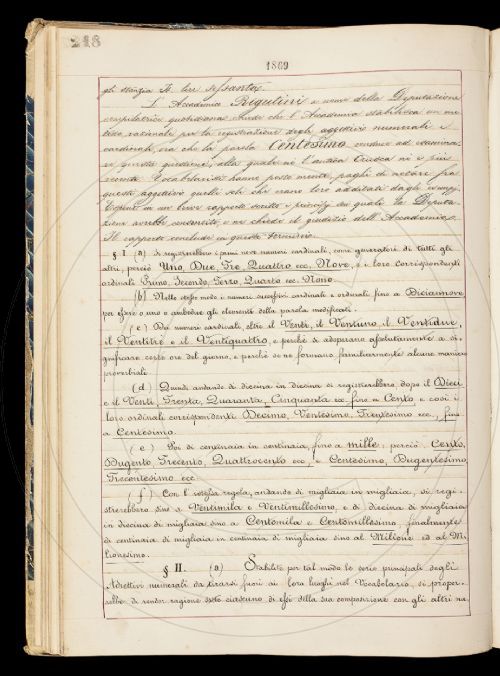 248
1869
gli stanzia It. lire sessanta.
L'Accademico Rigutini a nome della Deputazione
compilatrice quotidiana chiede che l'Accademia stabilisca un me
todo razionale per la registrazione degli aggettivi numerali e
cardinali, ora che la parola Centesimo conduce ad esaminar
si questa quistione, alla quale nè l'antica Crusca nè i più
recenti Vocabolaristi hanno posto mente, paghi di notare fra
questi aggettivi quelli soli che erano loro additati dagli esempj.
Espone in un breve rapporto scritto i principj su quali la Deputa
zione avrebbe consentito, e ne chiede il giudizio dell'Accademia.
Il rapporto conclude in questo termine.
§ I (a) Si registrerebbero i primi nove numeri cardinali, come generatori di tutti gli
altri, perciò Uno, Due, Tre, Quattro ecc. Nove, e i loro corrispondenti
ordinali Primo, Secondo, Terzo, Quarto ecc. Nono.
(b) Nello stesso modo i numeri successivi cardinali e ordinali fino a Diciannove,
per essere o uno o ambedue gli elementi della parola modificati.
(c) Dei numeri cardinali oltre il Venti, il Ventuno, il Ventidue,
il Ventitrè e il Ventiquattro, e perchè si adoperano assolutamente a si
gnificare certe ore del giorno, e perchè se ne formano familiarmente alcune maniere
proverbiali.
(d) Quindi andando di diecina in diecina si registrerebbero, dopo il Dieci
e il Venti, Trenta, Quaranta, Cinquanta ecc. fino a Cento, e così i
loro ordinali corrispondenti Decimo, Ventesimo, Trentesimo ecc., fino
a Centesimo.
(e) Poi di centinaia in centinaia, fino a mille; perciò Cento,
Dugento, Trecento, Quattrocento ecc., e Centesimo, Dugentesimo,
Trecentesimo ecc.
(f) Con l'istessa regola, andando di migliaia in migliaia, si regi
strerebbero sino a Ventimila e Ventimillesimo, e di diecina di migliaia
in diecina di migliaia sino a Centomila e Centomillesimo, finalmente
di centinaia di migliaia in centinaia di migliaia sino al Milione ed al Mi
lionesimo.
§ II. (a) Stabilite per tal modo le serie principali degli
Adiettivi numerali da tirarsi fuori ai loro luoghi nel Vocabolario, si propor
rebbe di render ragione sotto ciascuno di essi della sua composizione con gli altri nu